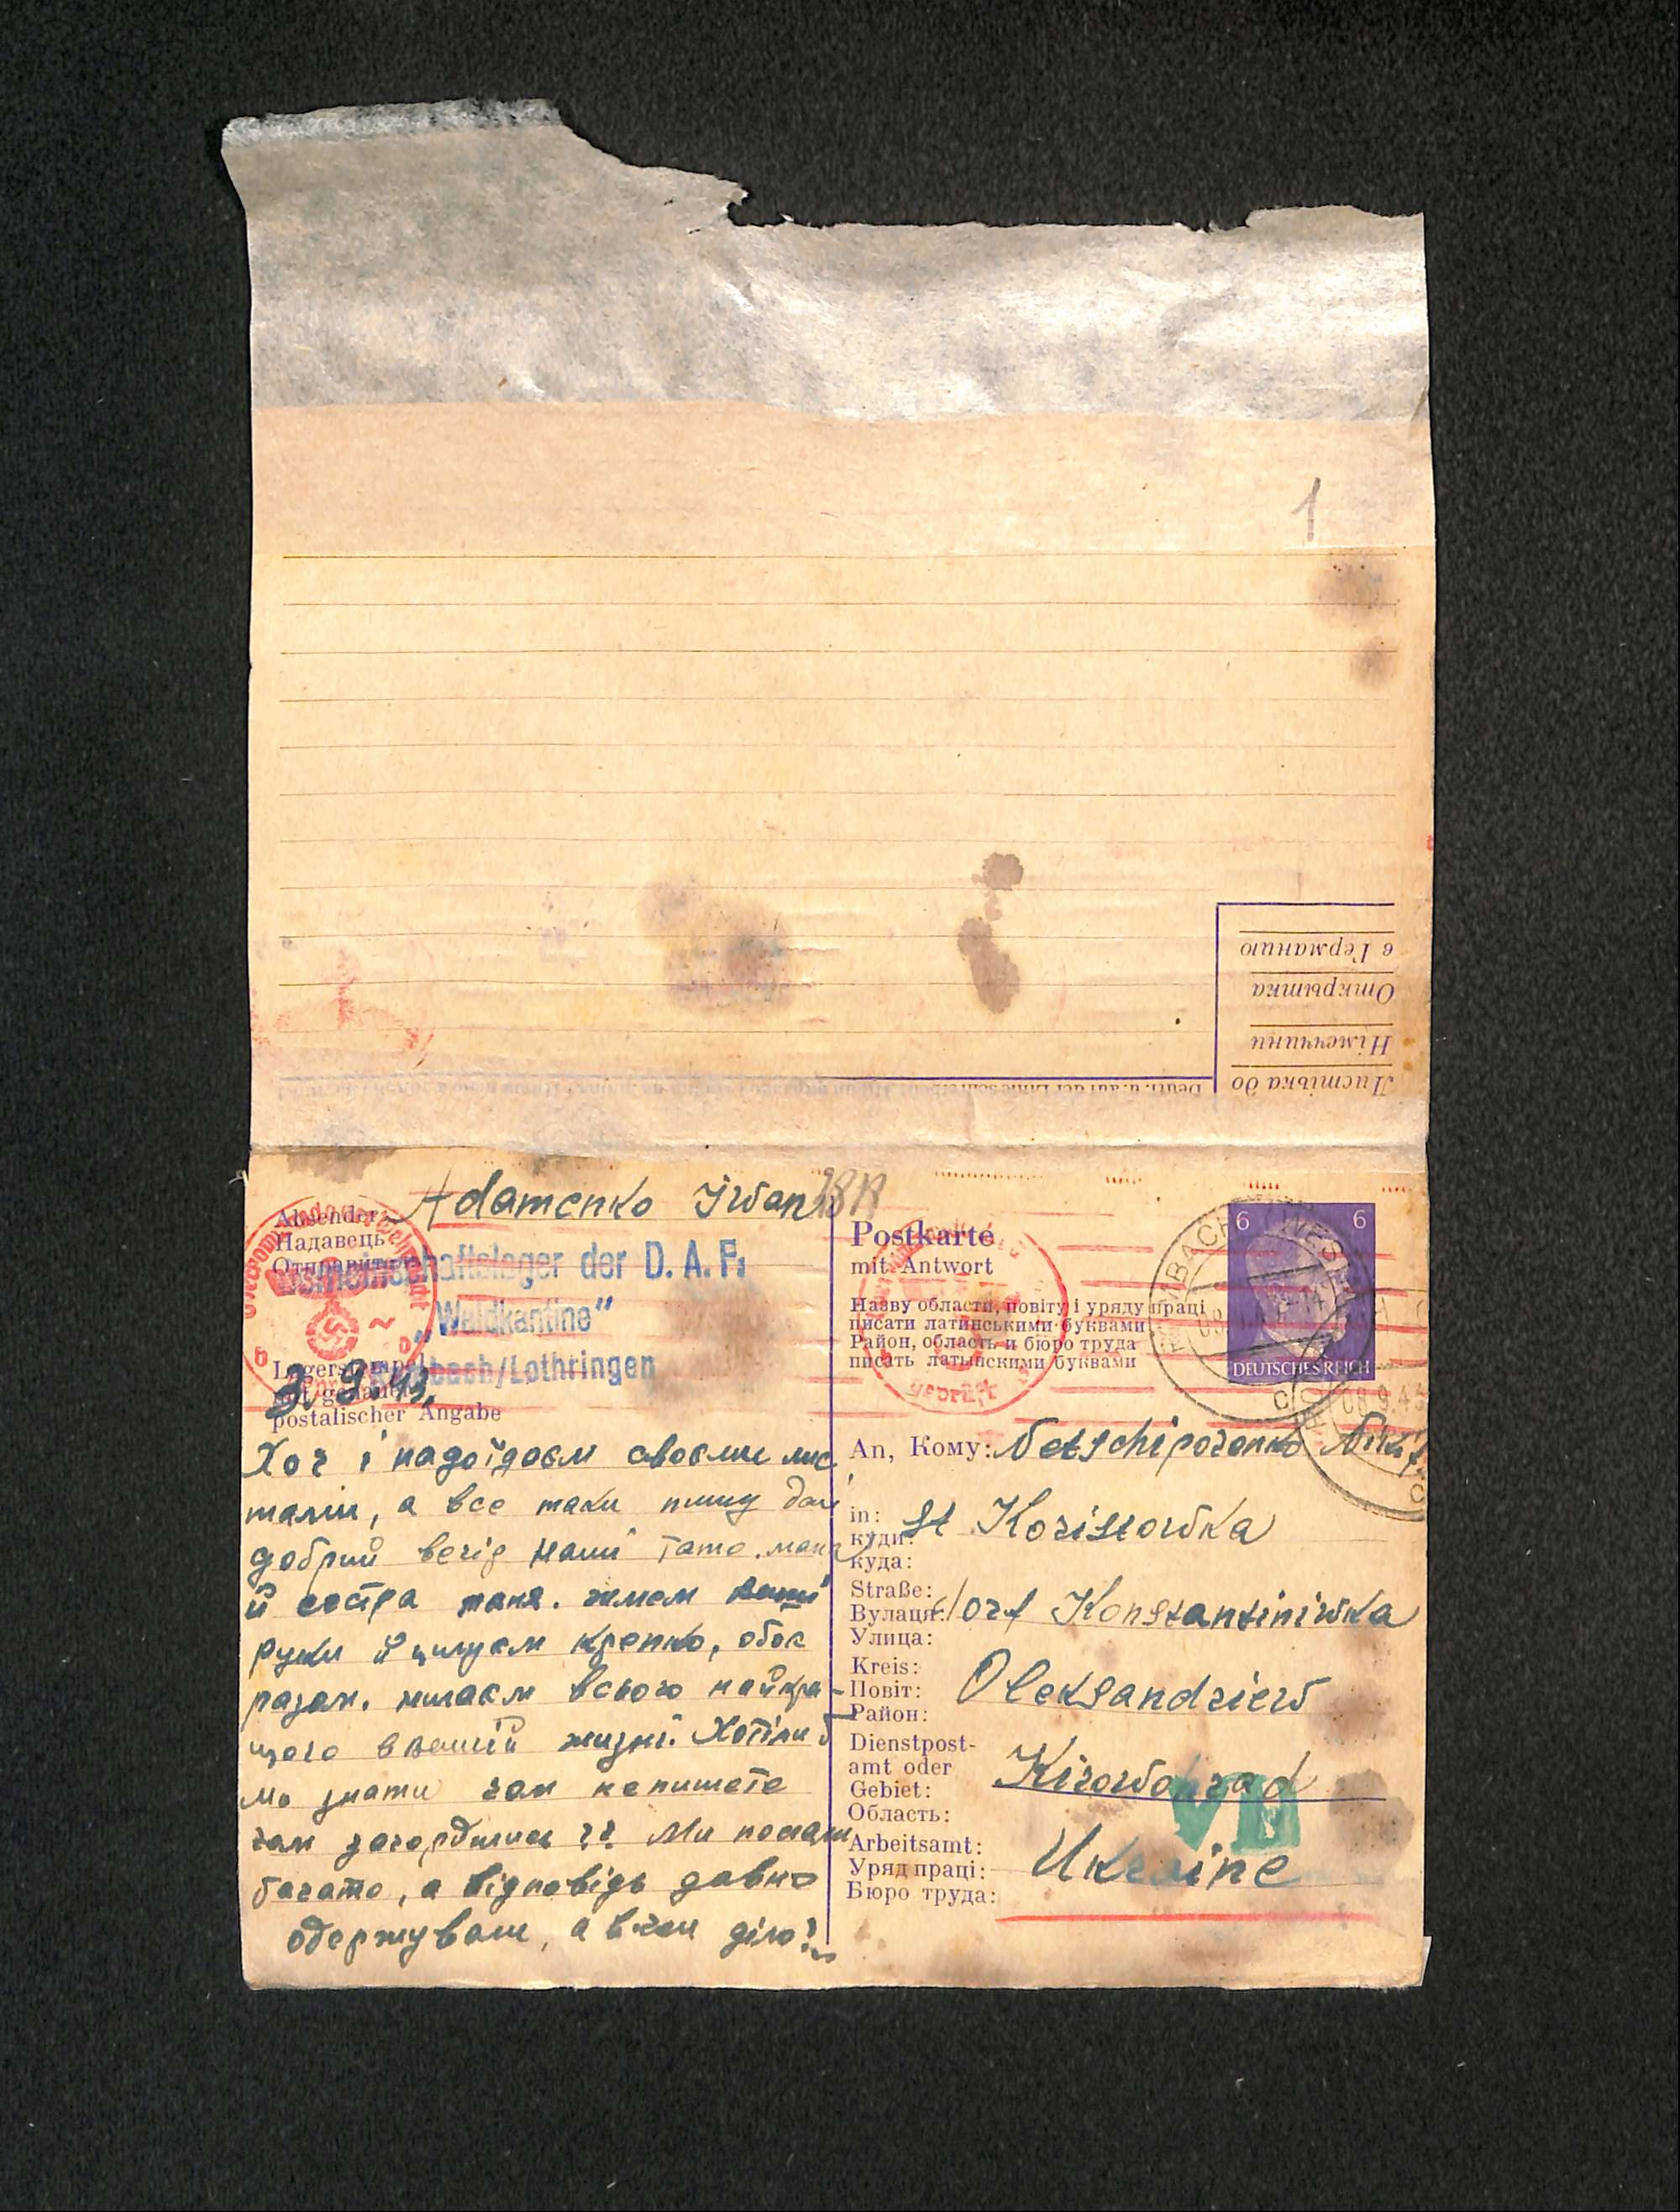 1
Листівка до
Німеччини
Открытка
в Германию
Adamenko Iwan
Absender
Надавець
Отправитель
Gemeinschaftslager der D. A. F.
„Waldkantine"
bach/Lothringen
Lagerstempel
mit genauer
postalischer Angabe
3. 9. 43.
Хоч і надоїдаєм своєми лис
тами, а все таки пишу далі
добрий вечір наші тато. мама
й сестра таня. жмем ваші
руки й цилуєм крепко, обоє
разом. желаєм всього найкра-
щого в вашій жизні. Хотіли б
ми знати чом не пишете
чом загордилися?? Ми послали
багато, а відповідь давно
одержували, а в чем діло?
Postkarte
mit Antwort
Назву области, повіту і уряду праці
писати латинськими буквами
Район, область и бюро труда
писать латынскими буквами
geprüft
6 6
DEUTSCHES REICH
08.9.43
An, Кому: Netschiporenko Nikif
in: st Koristowka
куди:
куда:
Straße:
Вулаця: dorf Konstantiniwka
Улица:
Kreis:
Повіт: Oleksandriew
Район:
Dienstpost-
amt oder
Gebiet: Kirowohrad
Область:
VII
Arbeitsamt:
Уряд праці: Ukraine
Бюро труда: